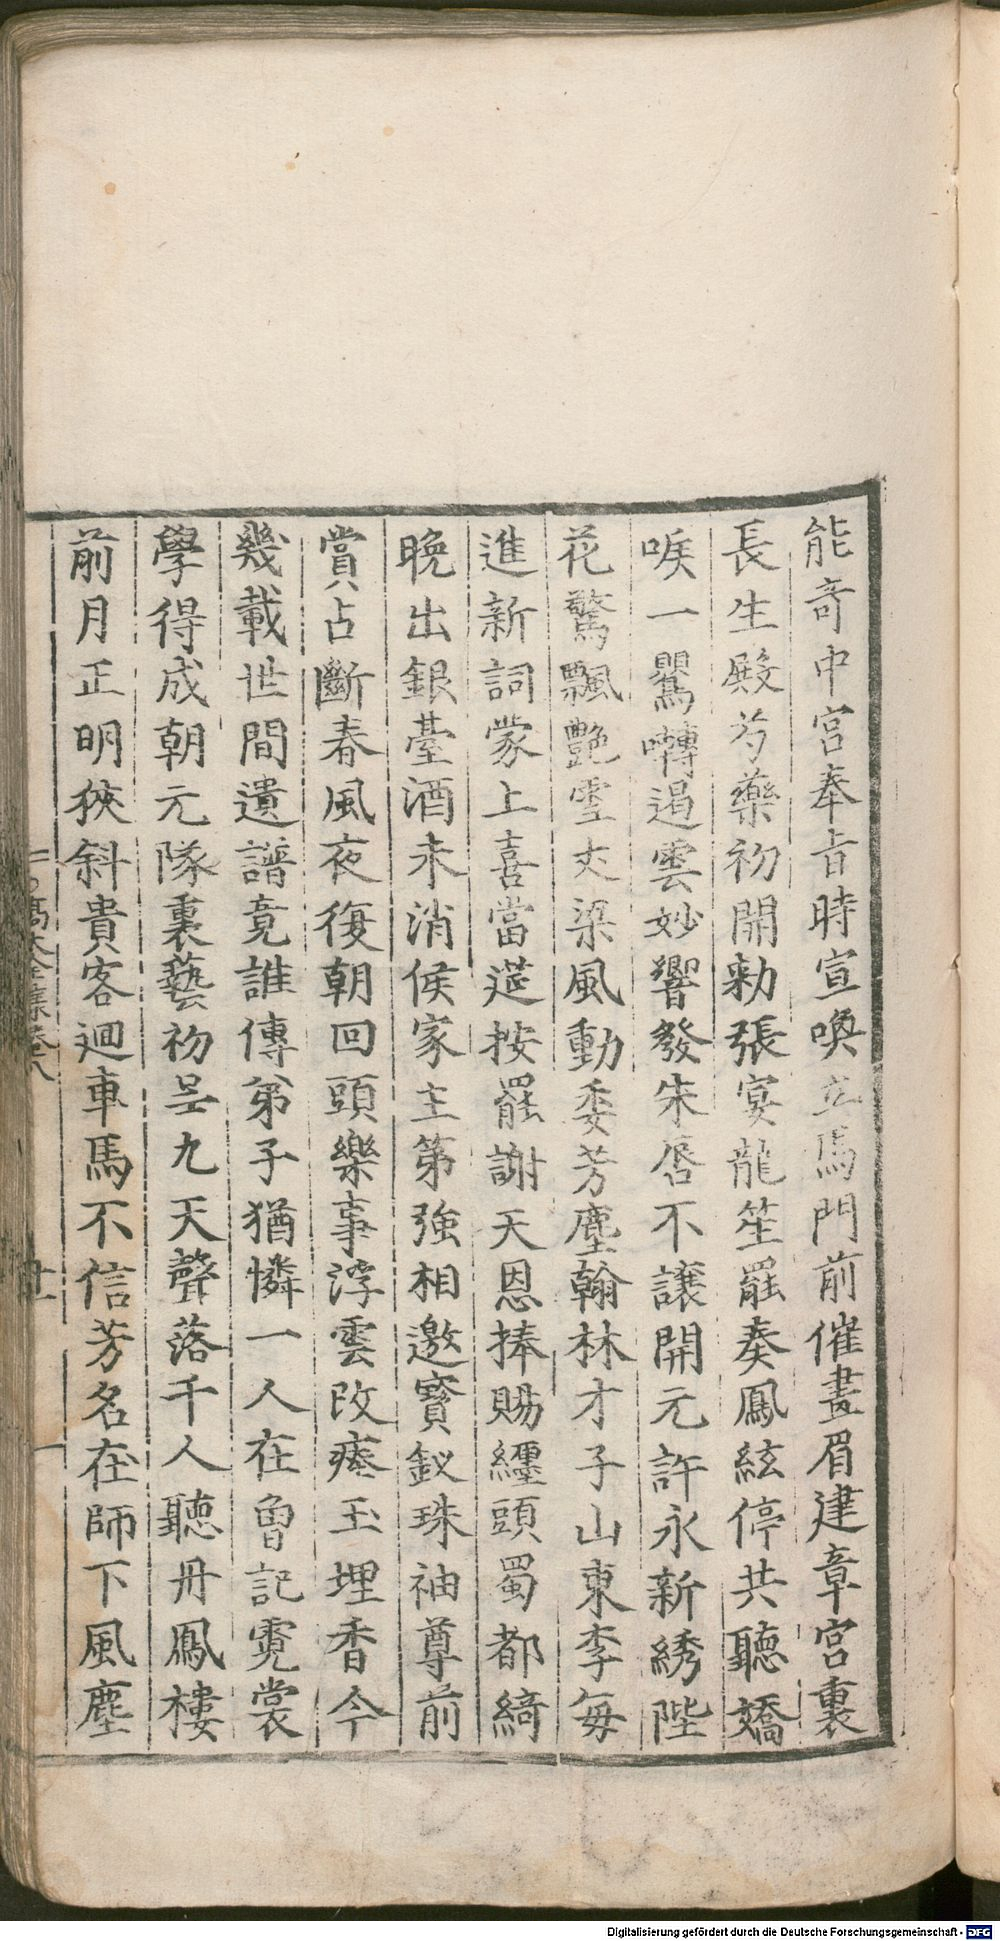 能奇中宮奉旨時宣喚立馬門前催畫眉建章宮裏
長生殿芍藥初開敕張宴龍笙罷奏鳳絃停共聽嬌
喉一鸎囀遏雲妙響發朱唇不讓開元許永新綉陛
花驚飄艷雪文梁風動委芳塵翰林才子山東李每
進新詞蒙上喜當筵按罷謝天恩捧賜纏頭蜀都綺
晚出銀臺酒未消侯家主第強相邀寳釵珠袖尊前
賞占斷春風夜復朝回頭樂事浮雲改瘞玉埋香今
幾載世間遺譜竟誰傳弟子猶憐一人在曾記霓裳
學得成朝元隊裏藝初呈九天聲落千人聽丹鳳樓
前月正明狹斜貴客迴車馬不信芳名在師下風塵
高太全集卷八
廿一
Digitalisierung gefördert durch die Deutsche Forschungsgemeinschaft - DFG